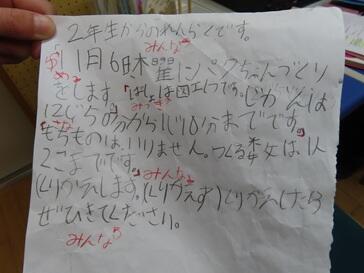 2年生からのれんらくです。
みんな
1月6日木曜にパクちゃんづくり
をします。ばしょは図工しつです。じかんは
12じ5分から1じ10分までです。
もちものは、いりません。つくる数は1人
2こまでです。
みんな
くりかえします。(くりかえす)くりかえしたら
ぜひきてください。
みんな